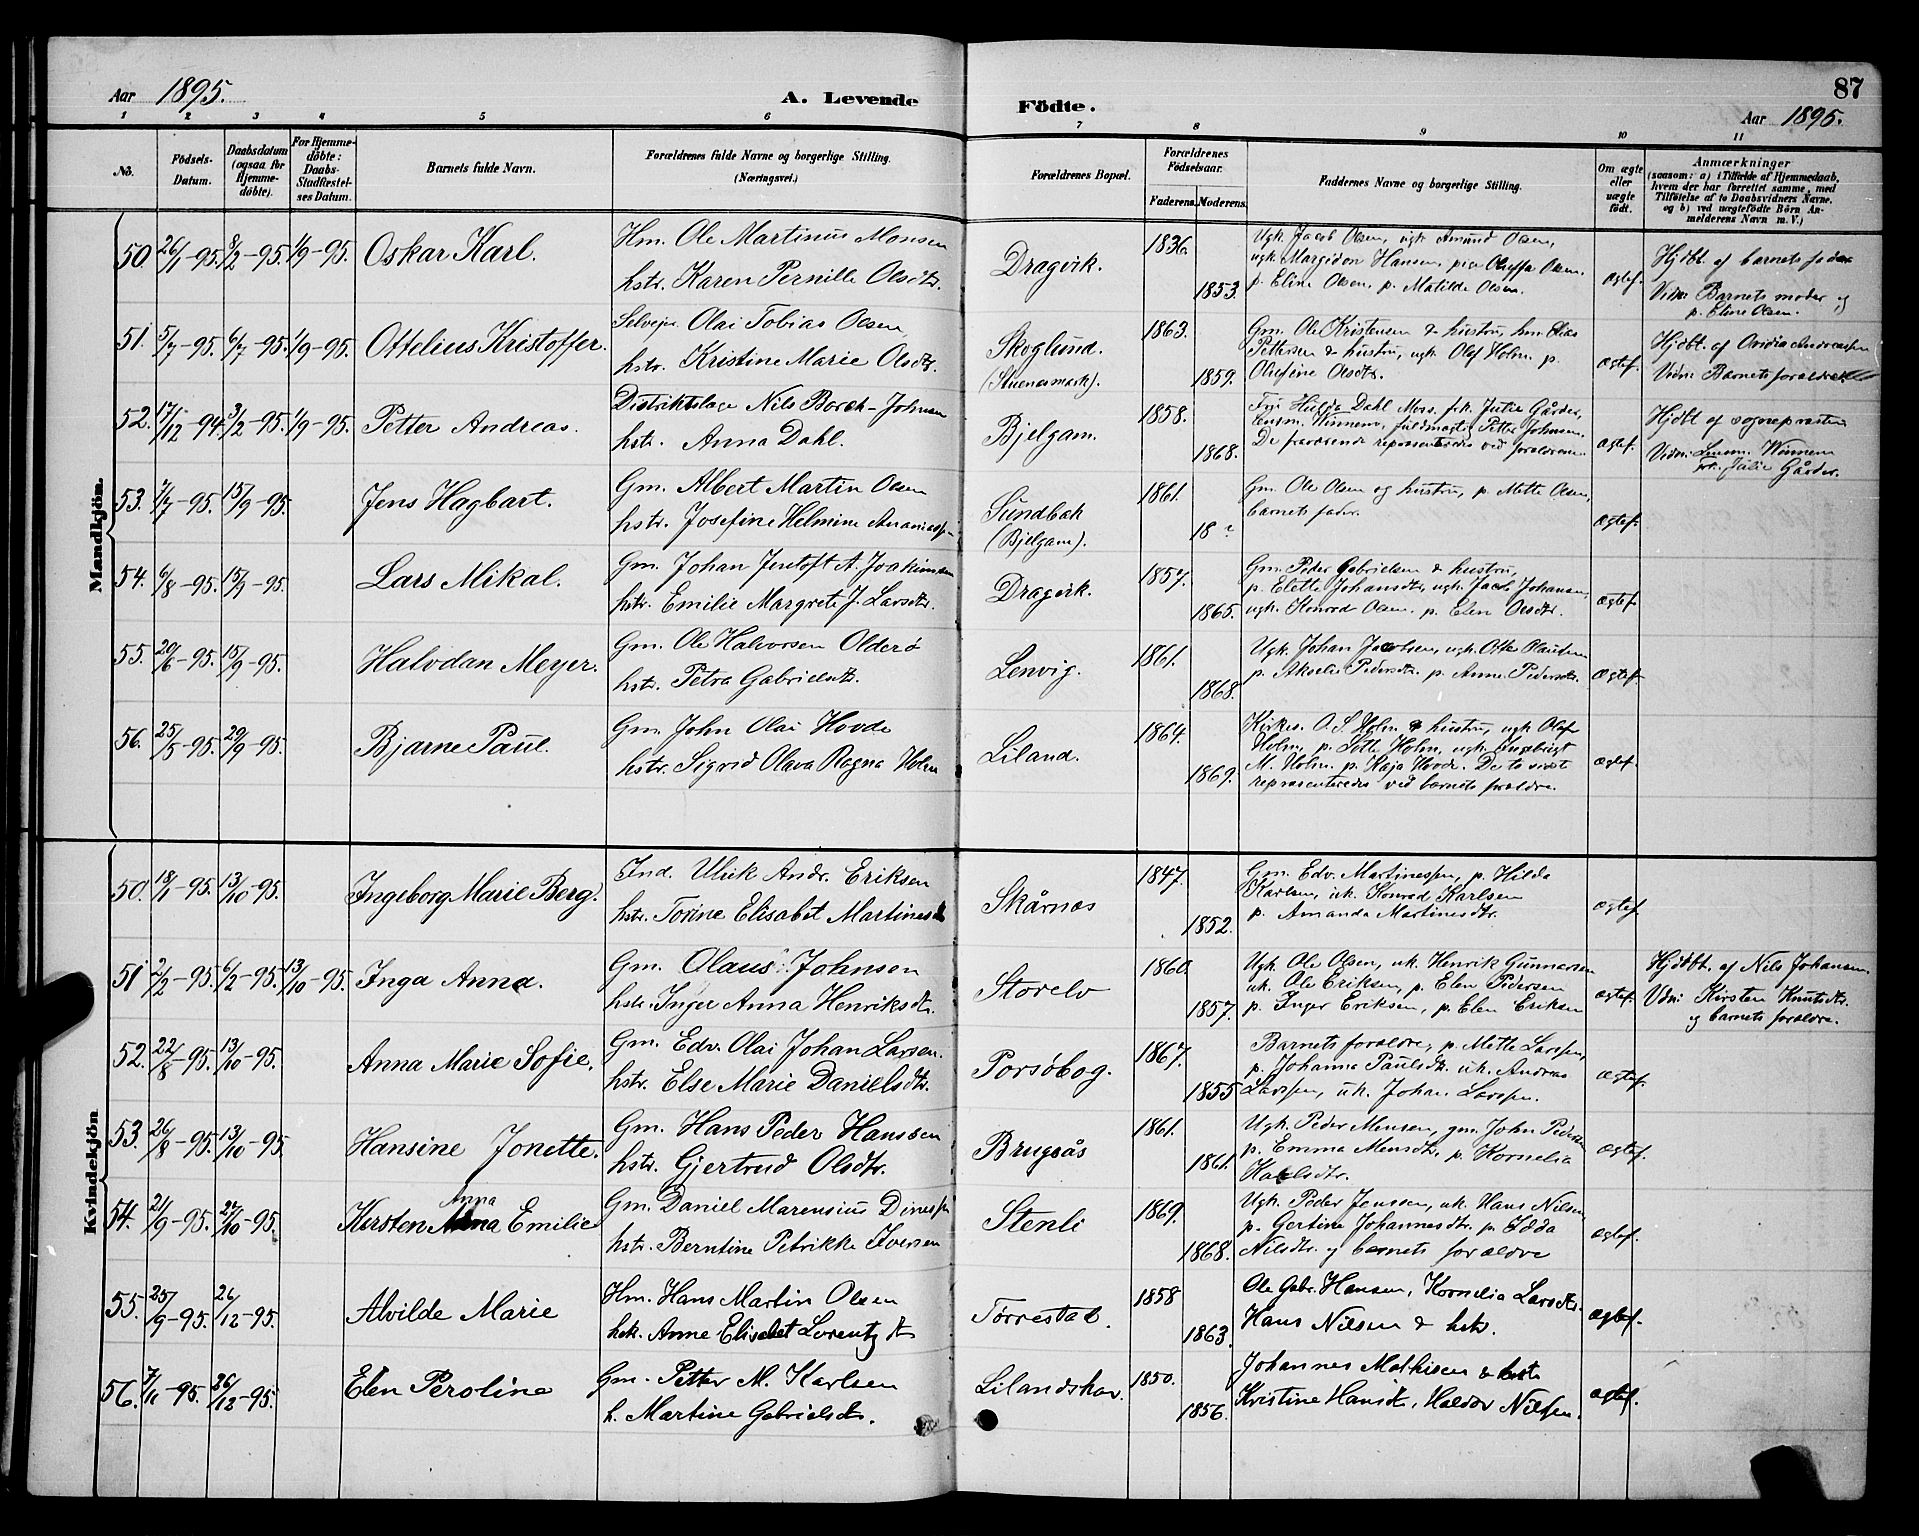 87
Aar 1895.
A. Levende Födte.
Aar 1895.
1 2 3 4 5 6 7 8 9 10 11
No.
Födsels-Datum.
Daabsdatum (ogsaa for Hjemmedöbte).
For Hjemmedöbte: Daabs-Stadfæstelses Datum.
Barnets fulde Navn.
Forældrenes fulde Navne og borgerlige Stilling. (Næringsvei.)
Forældrenes Bopæl.
Forældrenes Födselsaar.
Faderens. Moderens.
Faddernes Navne og borgerlige Stilling.
Om ægte eller uægte födt.
Anmærkninger
(saasom: a) i Tilfælde af Hjemmedaab, hvem der har forrettet samme, med Tilföielse af to Daabsvidners Navne, og b) ved uægtefödte Börn Anmelderens Navn m. V.)
Mandkjön.
50. 26/1-95. 8/2-95. 1/9-95. Oskar Karl. Hm. Ole Martinus Monsen
hstr. Karen Pernille Olsdtr.
Dragvik. 1836. 1853.
Ugk. Jacob Olsen, ugk. Amund Olsen,
ugk. Margidon Hansen, pige Oleffa Olsen.
p. Eline Olsen, p. Matilde Olsen.
ægtef.
Hjdbt. af barnets fader
Vidn: Barnets moder og
p. Eline Olsen.
51. 5/7-95. 6/7-95. 1/9-95. Ottelius Kristoffer. Selveier Olai Tobias Olsen
hstr. Kristine Marie Olsdtr.
Skoglund. 1863. 1859.
Gm. Ole Kristensen & hustru, hm. Elias
Pettersen & hustru, ugk. Olaf Holm, p.
Olufine Olsdtr.
ægtef.
Hjdbt. af Ovidia Andreassen
Vidn: Barnets forældre
52. 17/12-94. 3/2-95. 1/9-95. Petter Andreas. Distriktslæge Nils Borch-Johnsen
hstr. Anna Dahl.
Bjelgam. 1858. 1868.
Hulda Dahl Moss. frk. Julie Gårder,
Lensm. Winnem, fuldmægt. Petter Johnsen.
De fraværende repræsenteredes ved forældrene
ægtef.
Hjdbt af sognepræsten
Vidn: Lensm. Winnem
frk. Julie Gårder.
53. 4/7-95. 15/9-95. Jens Hagbart. Gm. Albert Martin Olsen
hstr. Josefine Helmine Ananiassen
Sundbak
(Bjelgam). 1861. 18 ?
Gm. Ole Olsen og hustru, p. Mette Olsen,
barnets fader.
ægtef.
54. 6/8-95. 15/9-95. Lars Mikal. Gm. Johan Jentoft A. Joakimsen
hstr. Emilie Margrete J. Larsdtr.
Dragvik. 1857. 1865.
Gm. Peder Gabrielsen & hustru,
p. Elette Johansdtr, ugk. Jacob Johansen,
ugk. Konrad Olsen. p. Elen Olsdtr.
ægtef.
55. 20/6-95. 15/9-95. Halvdan Meyer. Gm. Ole Halvorsen Olderö
hstr. Petra Gabrielsdtr.
Lenvig. 1861. 1868.
Ugk. Johan Jacobsen, ugk. Otto Olaussen
p. Akselie Pedersdtr. p. Anne Pedersdtr.
ægtef.
56. 25/5-95. 29/9-95. Bjarne Paul. Gm. John Olai Hovde
hstr. Sigrid Olava Ragna Holm
Liland. 1864. 1869.
Kirkes. O. S. Holm & hustru, ugk. Olaf
Holm, p. Lotte Holm, ugk. Ingebrigt
M. Holm, p. Kaja Hovde. De to sidst
repræsenteredes ved barnets forældre.
ægtef.
Kvindekjön
50. 18/1-95. 13/10-95. Ingeborg Marie Berg. Ind. Ulrik Andr. Eriksen
hstr. Torine Elisabet Martinesdtr
Skårnæs 1847. 1852.
Gm. Edv. Martinessen, p. Hilda
Karlsen, uk. Konrad Karlsen
p. Amanda Martinesdtr.
ægtef.
51 2/2-95. 6/2-95. 13/10-95. Inga Anna. Gm. Olaus Johnsen
hstr. Inger Anna Henriksdtr.
Storelv 1860. 1857.
Ugk. Ole Olsen, uk. Henrik Gunnarsen
uk. Ole Eriksen, p. Elen Pedersen
p. Inger Eriksen, p. Elen Eriksen
ægtef.
Hjdbt. af Nils Johansen
Vdn: Kirsten Knutsdtr.
og barnets forældre.
52. 22/8-95. 13/10-95. Anna Marie Sofie. Gm. Edv. Olai Johan Larsen.
hstr. Else Marie Danielsdtr.
Porsöbog. 1867. 1855
Barnets forældre, p. Mette Larsen,
p. Johanna Paulsdtr. uk. Andreas
Larssen, uk. Johan Larssen.
ægtef.
53. 26/8-95. 13/10-95. Hansine Jonette. Gm. Hans Peder Hanssen
hstr. Gjertrud Olsdtr.
Brugsås 1861. 1861.
Ugk. Peder Monsen, gm. John Pedersen
p. Emma Monsdtr. p. Kornelia
Karlsdtr.
ægtef.
54. 21/9-95. 27/10-95. Kirsten Anna Emilie Gm. Daniel Marensius Dinessen
hstr. Berntine Petrikke Iversen
Stenli 1869. 1868.
Ugk. Peder Jenssen, uk. Hans Nilsen,
p. Gertine Johannesdtr. p. Edda
Nilsdtr. og barnets forældre
ægtef.
55. 25/9-95. 26/12-95. Alvilde Marie Hm. Hans Martin Olsen
hst. Anne Elisabet Lorentzdtr
Tørrestad. 1858 1863.
Ole Gabr. Hansen, Kornelia Larsdtr.
Hans Nilsen & hstr.
ægtef.
56. 7/11-95. 26/12-95. Elen Peroline Gm. Petter M. Karlsen
h. Martine Gabrielsdtr.
Lilandskar. 1850. 1856.
Johannes Mathisen & hst
Kristine Hansdtr, Haldor Nilsen.
ægtef.